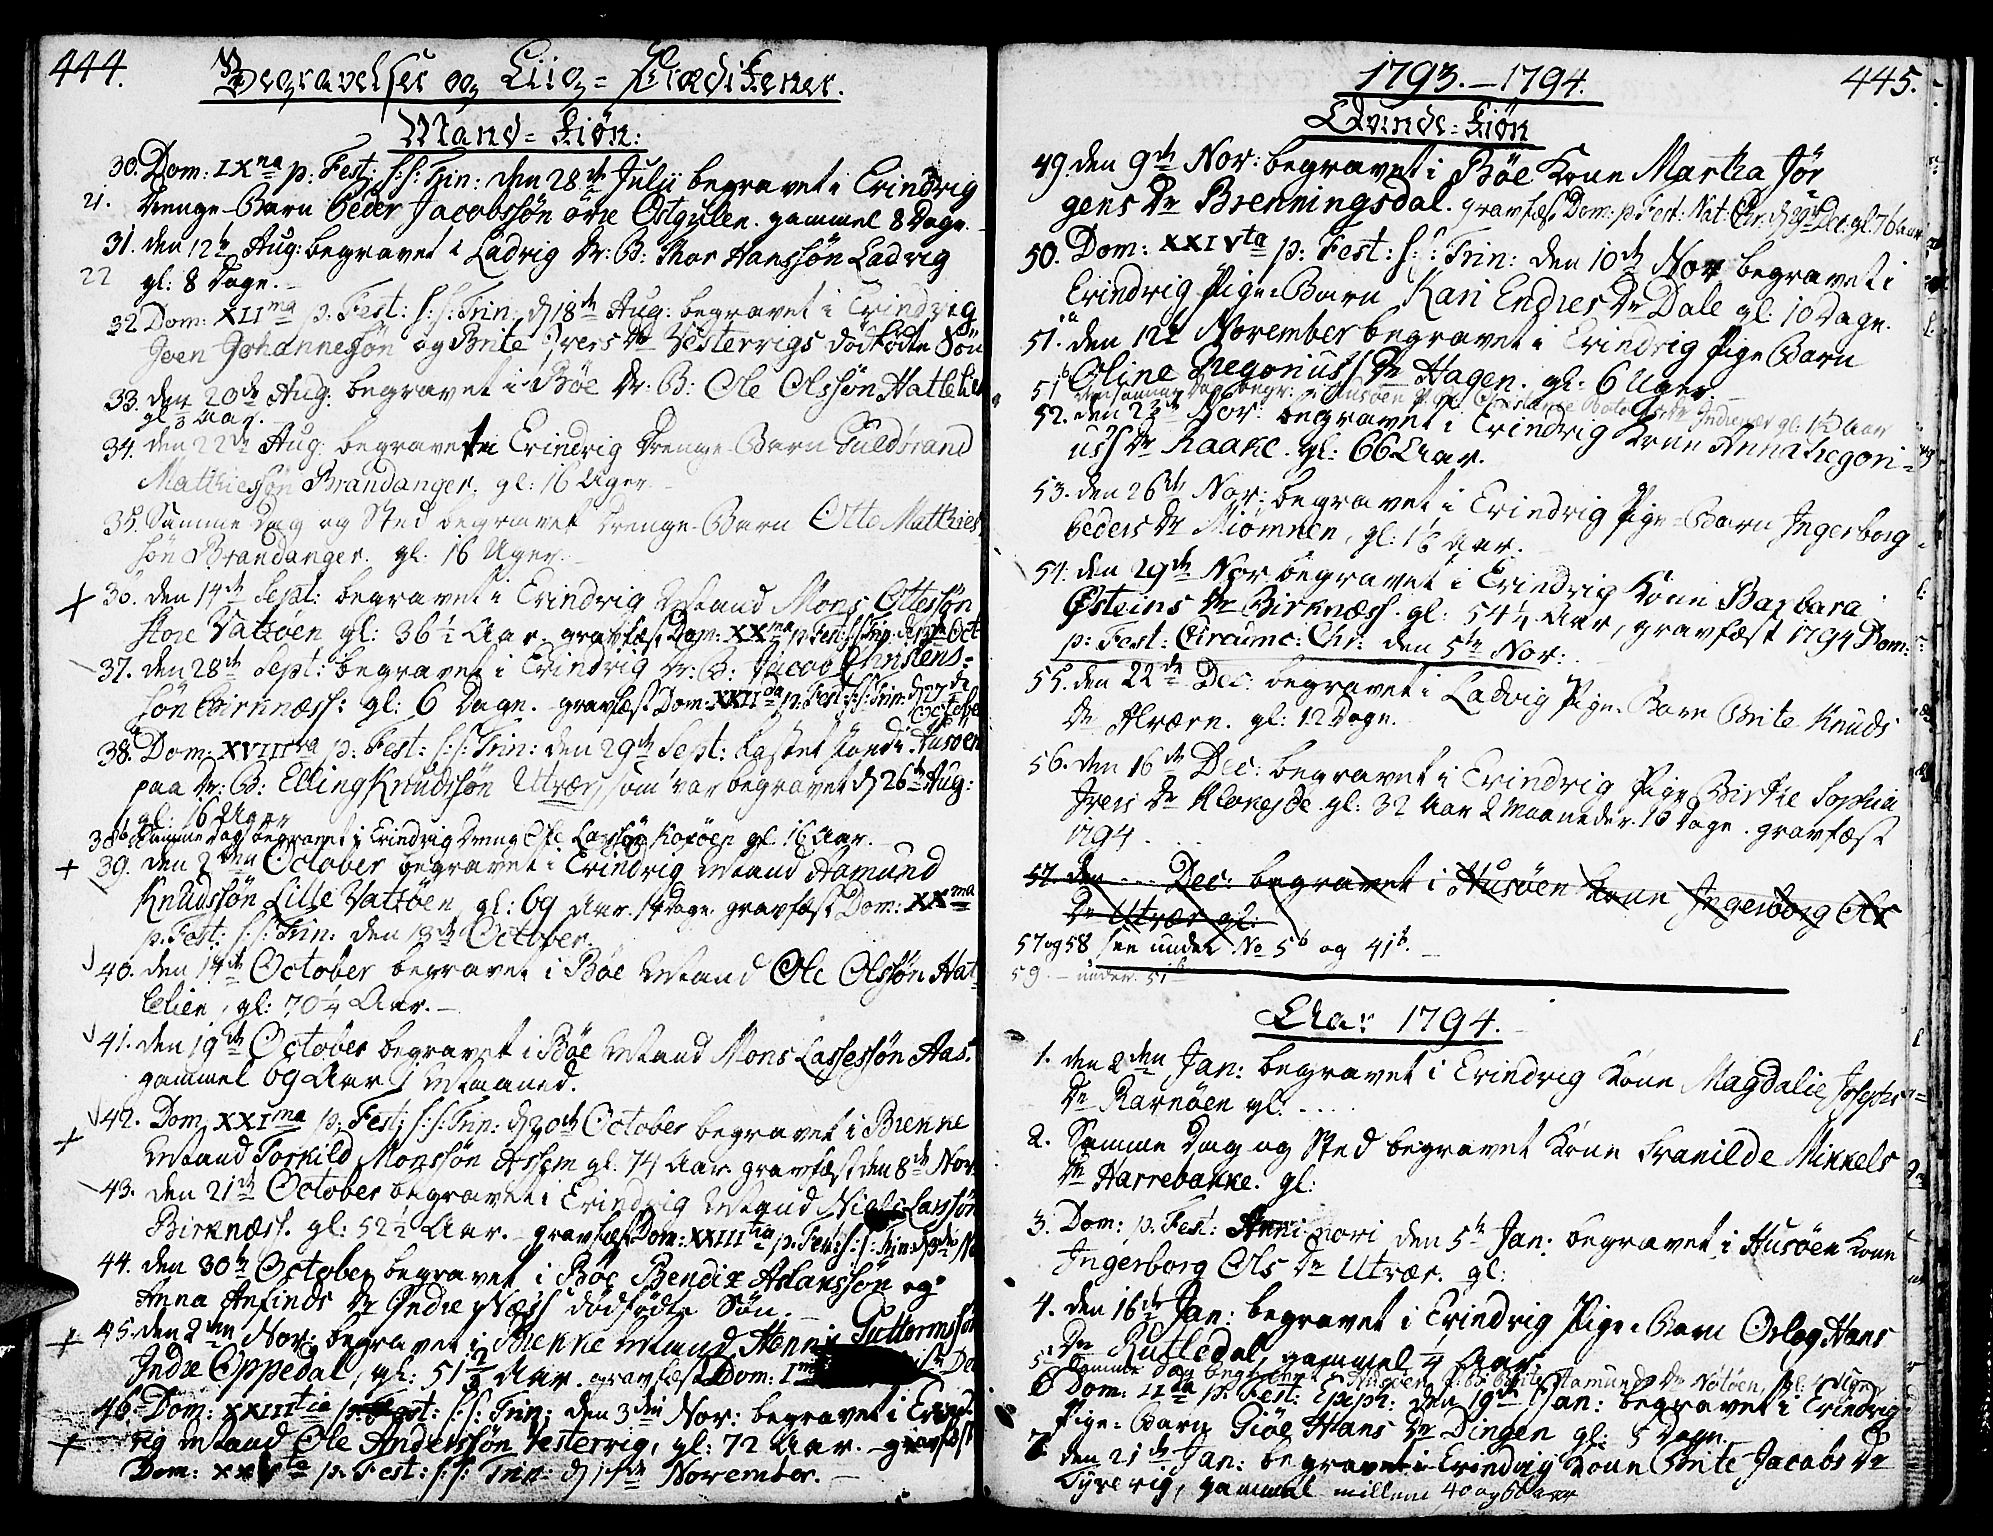 444.
Begravelser og Liig-Prædikener.
Mand-Kiøn:
30. Dom: IXna p: Fest: s: s: Trin: den 28de Julii begravet i Evindvig
21. Drenge-Barn Peder Jacobssøn øvre Østgulen. gammel 8 Dage.
31. den 12te Aug: begravet i Ladvig Dr: B: Hanssøn Ladvig
22 gl: 8 Dage.
32. Dom: XIIma p: Fest: s: s: Trin: d 18de Aug: begravet i Evindvig
Joen Johannessøn og Brite Ivers Dr Vesterrigs dødfødte Søn
33. den 20de Aug: begravet i Bøe Dr: B: Ole Olssøn Hatlelie
gl: Aar.
34. den 22de Aug: begravet i Evindvig Drenge-Barn Guldbrand
Matthiessøn Brandanger. gl: 16 Uger
35. Samme Dag og Sted begravet Drenge-Barn Otte Matthies
søn Brandanger. gl: 16 Uger.
36. den 14de Sept: begravet i Evindvig Mand Mons Ottessøn
store Vatsøen gl: 36½ Aar. gravfæst Dom: XXma p: Fest: s: s: Trin: Oct
37. den 28de Sept: begravet i Evindvig Dr: B: Jacob Christens=
søn Birknæss: gl: 6 Dage. gravfæst Dom: XXIIda p: Fest: s: s: Trin: d 27de October
38a Dom: XVIIIva p: Fest: s: s: Trin: den 29de Sept: kastet Jord i Husøen
paa Dr: B: Elling Knudssøn Utvær, som var begravet d 26de Aug:
gl: 16 Uger
38b Samme Dag begravet i Evindvig Dreng Ole Larssøn gl: 16 Aar.
39. den 2den October begravet i Evindvig Mand Aamund
Knudssøn Lille Vatsøen gl: 69 Aar. 14 Dage. gravfæst Dom: XXma
p: Fest: s: s: Trin: den 13de October.
40. den 14de October begravet i Bøe Mand Ole Olssøn Hat-
lelien, gl: 70¼ Aar.
41. den 19de October begravet i Bøe Mand Mons Lassessøn Aas.
gammel 69 Aar 1 Maaned.
42. Dom: XXIma p: Fest: s: s: Trin: d 20de October begravet i Brekke
Mand Torkild Monssøn gl: 74 Aar gravfæst den 8de Nov
43. den 21de October begravet i Evindvig Mand Niels Larssøn
Birknæss. gl: 52½ Aar. gravfæst Dom: XXIIItia p: Fest: s: s: Trin: d 3die Nov
44. den 30te October begravet i Bøe Bendix Aslanssøn og
Anna Anfinds Dr Indre Næss dødfødte Søn.
45. den 2den Nov: begravet i Brekke Mand Henrik Guttormssøn
Indre Oppedal, gl: 51½ Aar. gravfæst Dom: Ima
46. Dom: XXIIItia p: Fest: s: s: Trin: den 3die Nov: begravet i Evind-
vig Mand Ole Anderssøn Vesterrig, gl: 72 Aar. gravfæst
Dom: XXVta p: Fest: s: s: Trin: d 17de November.
1793.-1794. 445.
Qvinde-Kiøn
49 den 9de Nov: begravet i Bøe Kone Martha Jør-
gens Dr Brenningsdal. gravfæst Dom: p: Fest: Nat: Chr: d 29de Dec: gl: 76 Aar
50. Dom: XXIVta p: Fest: s: s: Trin: den 10de Nov begravet i
Evindvig Pige-Barn Kari Endres Dr Dale gl: 10 Dage.
51.a den 12te November begravet i Evindvig Pige Barn
Oline Gregoriuss Dr Hagen. gl: 6 Uger.
51b Samme Dag begr: i Husøen gl: 1½ Aar
52. den 23de Nov: begravet i Evindvig Kone Anna Gregori-
uss Dr Raake. gl: 66 Aar.
53. den 26de Nov: begravet i Evindvig Pige-Barn Ingerborg
Peders Dr Miømnen, gl: 1½ Aar.
54. den 29de Nov begravet i Evindvig Kone Barbara
Østeins Dr Birknæss. gl: 54½ Aar, gravfæst 1794 Dom:
p: Fest: Circumc: Chr: den 5te Nov:
55. den 22de Dec: begravet i Ladvig Pige-Barn Brite Knuds
Dr Alværn. gl: 12 Dage.
56. den 16de Dec: begravet i Evindvig Pige Birte Sophia
Ivers Dr gl: 32 Aar 2 Maaneder 16 Dage. gravfæst
1794
57. den .... Dec: begravet i Husøen Kone Ingerborg Ols
Dr Utvær gl:
57 og 58 see under No 5b og 41b.
59. – under 51b
Aar 1794.
1. den 2den Jan: begravet i Evindvig Kone Magdalie Josephs
Dr Ravnøen gl: ....
2. Samme Dag og Sted begravet Kone Tranilde Mikkels
Dr Harrebakke. gl:
3. Dom: p: Fest: Anni novi den 5te Jan: begravet i Husøen Kone
Ingerborg Ols Dr Utvær. gl:
4. den 16de Jan: begravet i Evindvig Pige-Barn Oslog Hans
Dr Rutledal, gammel ¼ Aar
5. Samme Dag begravet i Husøen P: B: Brite Aamunds Dr Nøtøen, gl: 4 Uger
6 Dom: IIda p: Fest: Epiph: den 19de Jan: begravet i Evindvig
Pige-Barn Giøe Hans Dr Dingen gl: 5 Dage.
7. den 21de Jan: begravet i Evindvig Kone Brite Jacobs Dr
Tyverig, gammel millem 40 og 50 Aar